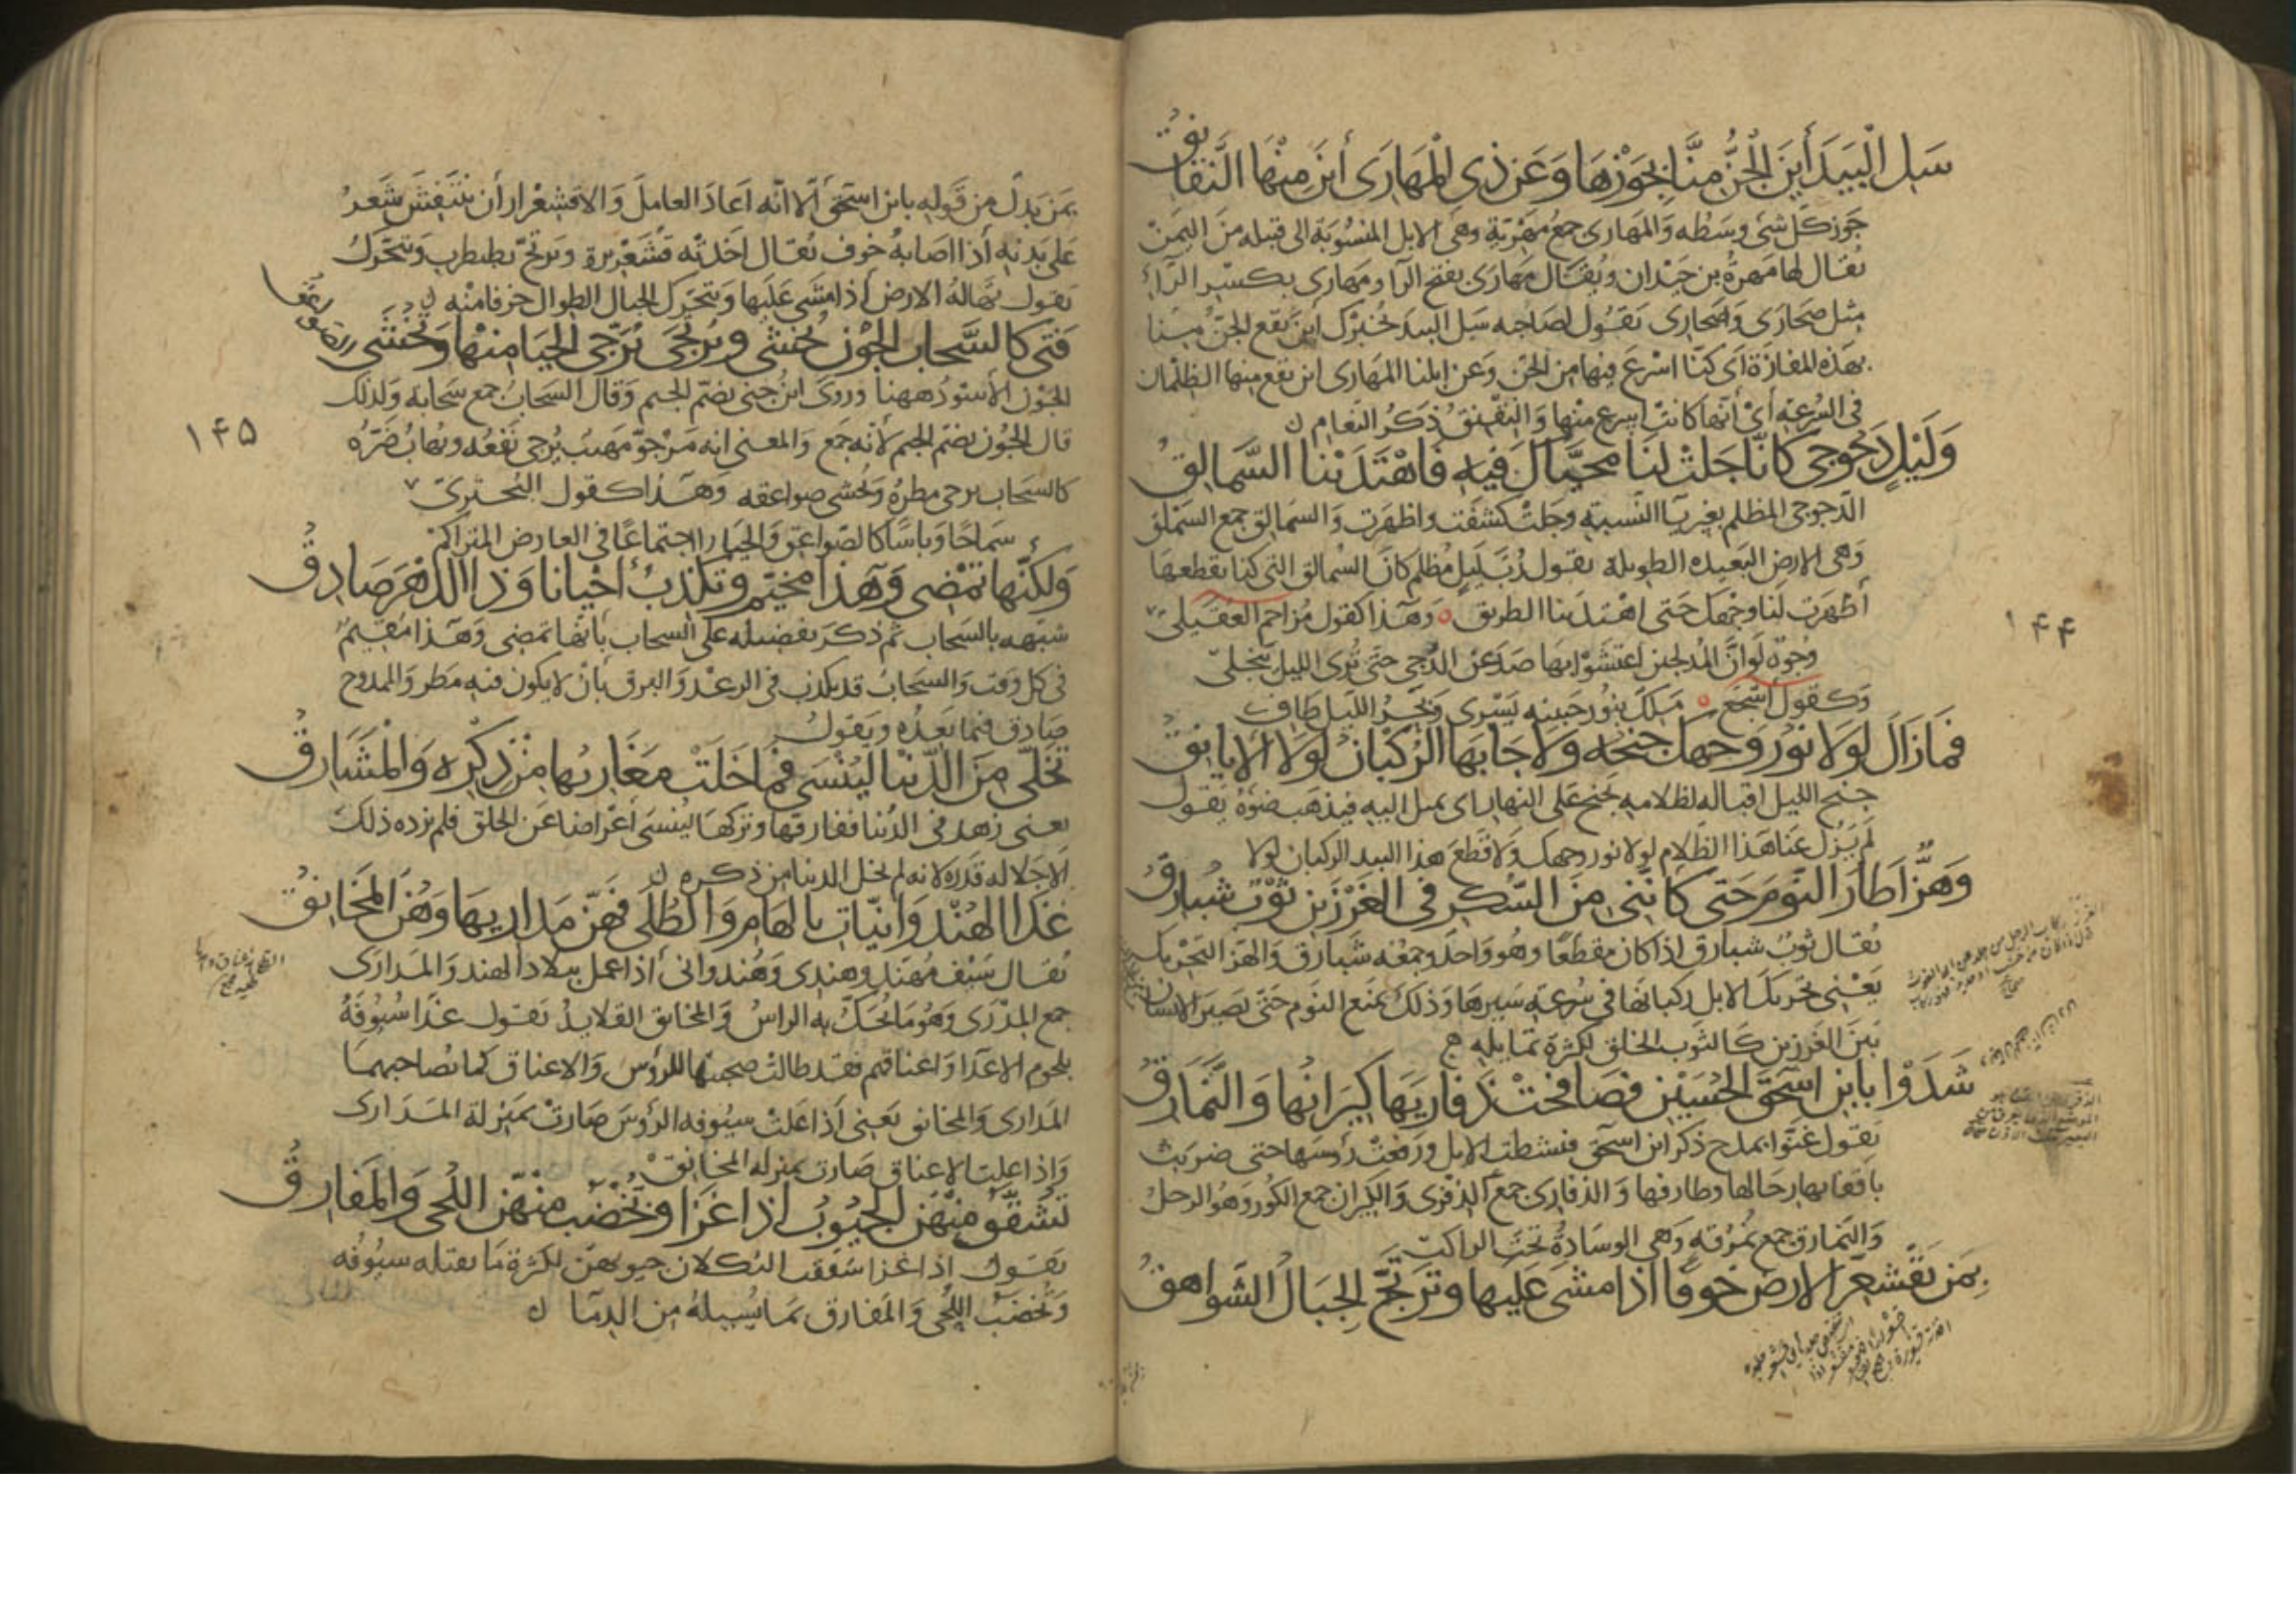 سَلِ الْبِيدَ أَيْنَ الْجِنُّ مِنَّا بِجَوْزِهَا وَعَن ذِي الْمَهَارَى أَيْنَ مِنْهَا النَّقَانِقُ
جَوز كل شى وسَطُه وَالمَهارى جمعُ مَهْرِيّةٍ وهى الابل المنسُوبَة الى قبيله منَ اليمَنْ
يُقال لها مَهرةُ بن حَيْدان ويُقال مَهارَى بفتح الرا ومَهارى بكسْر الرّاء
مثل صَحارَى وَصَحارى يَقُول لصَاحبه سَل البيدَ تخبرْك أينَ يَقع الجنُّ مِنّا
بهذه المفازَة أى كنّا اسْرعَ فيها من الجن وَعَن ابلنا المهَارى اين تقع منها الظلمان
فى السُرعَة أىْ أنّها كانت اسرع منْها وَالنِقْنِقُ ذكَرُ النعَام ن
وَلَيْلٍ دَجُوجِي كَأَنَّا جَلَتْ لَنَا مُحَيَّاكَ فِيهِ فَاهْتَدَيْنَا السَّمَالِقُ
الدّجوجى المظلم بغير يا النسبَة وجَلتْ كشفَت واظهَرت وَالسَمَالق جمع السَمْلق
وَهى الارض البَعيده الطويلة يقول رُبّ لَيلٍ مُظلم كانّ السَمالق التى كنا نقطعهَا
أظهرَت لنَا وجْهك حَتى اهْتدَينا الطريق وَهَذا كقول مُزاحم العُقَيلىّ
وُجُوه لَوَ انَّ المُدلجينَ اعتشَوْا بها صَدَعْنَ الدُّجى حَتى تُرى الليلَ يَنْجَلى
وَكقول أشجَع مَلكٌ بنُور جَبينه يَسْرى وَبَحرُ اللّيل طافِ
فَمَا زَالَ لَوْلَا نُورُ وَجْهِكَ جِنْحُهُ وَلَا جَابَهَا الرُّكْبَانُ لَوْلَا الْأَيَانِقُ
جنح الليل اقباله لظلامه يجنح على النهار اى يميل اليه فيذهَب ضوْءهُ يَقول
لَم يَزُل عَنّا هَذا الظلام لولا نور وجهك وَلا قَطعَ هذا البيد الركبان لولا
وَهَزٌّ أَطَارَ النَّوْمَ حَتَّى كَأَنَّنِي مِنَ السُّكْرِ فِي الْغَرْزَيْنِ ثَوْبٌ شُبَارِقُ
يُقال ثوبٌ شبارق اذا كان مقطعًا وهُو وَاحدٌ وجمعُه شَبارق وَالهَز التحْريك
يَعْنى تحريكَ الابل ركبانها فى سُرعَة سَيرها وَذلكَ يَمْنع النوم حَتى تصيرَ الانسان
بَينَ الغَرزين كَالثوب الخلق لكثرة تمايله
شَدَوْا بِابْنِ اسْحٰقَ الْحُسَيْنِ فَصَافَحَتْ ذَفَارِيَهَا كِيرَانُهَا وَالنَّمَارِقُ
يَقول غَنّوا بمدح ذكر ابن اسحٰق فنشطت الابل ورفعَتْ رُؤسَها حتى ضربَتْ
باقفائها رحَالها وطارفها وَالذفارى جمع الذفرى وَالكيران جمع الكور وَهُو الرحل
وَالنمارق جمع نمرُقه وَهى الوسَادة تحتَ الراكب
بِمَنْ تَقْشَعِرُّ الْارضُ خَوْفًا اذَا مَشَى عَلَيهَا وَتَرْتَجُّ الْجِبَالُ الشَّوَاهِقُ
۱۴۴
بمَن بَدلٌ من قَوله بابن اسحٰق إلّا انّه اعَادَ العاملَ وَالاقشعْرار أن ينتَفش شَعر
عَلى بَدنه أذا اصَابهُ خوف يُقال اخَذتْه قُشَعْريرة وترتجّ تضطرب وتتحَرّكُ
يَقول تهَالهُ الارض أذا مشَى عَلَيها وَتتحرّك الجبال الطوال خوفا منْه ن
فَتًى كَالسَّحَابِ الْجُونِ يُخْشَى وَيُرْتَجَى يُرَجَّى الْحَيَا مِنْهَا وَتُخْشَى الصواعق
الجَوْن الأسْودُ ههنا وروَى ابنُ جنى بضمّ الجيم وَقال السَحابُ جمع سَحابة وَلذلك
قال الجُون بضم الجيم لأنه جمَع وَالمعنى انه مَرْجوّ مَهيبٌ يُرجى نَفعُه ويُهابُ ضَرّه
كالسحَاب يرجى مطرهُ وَتخشى صواعقه وهَذا كقول البُحترىّ
سَماحًا وَباسًا كالصّواعق وَالحيَا اذا اجتماعًا فى العارض المتراكم
وَلكِنَّهَا تَمْضِي وَهَذَا مُخَيِّمٌ وَتَكْذِبُ أَحْيَانًا وَذَا الدَّهْرَ صَادِقُ
شبّهه بالسَحاب ثم ذكرَ تفضيله على السحاب بأنها تمضى وَهَذا مُقيمٌ
فى كل وَقت وَالسَحابُ قد يكذب فى الرعْد وَالبرق بأنْ لا يكون فيه مَطر وَالممدوح
صَادق فيما يعدُه ويَقولُ
تَخَلَّى مِنَ الدُّنْيَا لِيُنْسَى فَمَا خَلَتْ مَغَارِبُهَا مِنْ ذِكْرِهِ وَالْمَشَارِقُ
يعنى زهد فى الدُنيا ففارقها وتركها ليُنسَى أعْراضا عَن الخلق فلم نزده ذلك
الا جَلالة قدره لانه لم تخل الدنيا من ذكره ن
غَذَا الْهُنْدُوَانِيَّاتِ بِالْهَامِ وَالطُّلَى فَهُنَّ مَدَارِيهَا وَهُنَّ الْمَخَانِقُ
يُقال سَيْف مُهَنّد وهندى وَهُندوانى أذا عمل ببلاد الهند وَالمَدارى
جمع المِدْرَى وَهُو مَا يُحَكّ به الراسُ وَالمخانق القلايدُ يَقول غذَا سُيُوفَهُ
بلحوم الاعدا وَاعناقهم فقد طالت صحبتها للرؤس وَالاعناق كما تصاحبهما
المَدارى وَالمخانق يَعنى أذا عَلتْ سيُوفه الرؤسَ صَارتْ بمَنزلة المَدَارى
وَإذا علت الاعناق صَارت بمنزله المخانق
تُشَقَّقُ مِنْهُنَّ الْجُيُوبُ إِذَا غَزَا وَتُخْضَبُ مِنْهُنَّ اللِّحَى وَالْمَفَارِقُ
يَقول اذا غزا شققت الثكلان جيوبهنّ لكثرة مَا تقتله سيُوفه
وَتُخضَبُ اللّحى وَالمفارق بمَا يُسيلهُ من الدمَا ن
۱۴۵